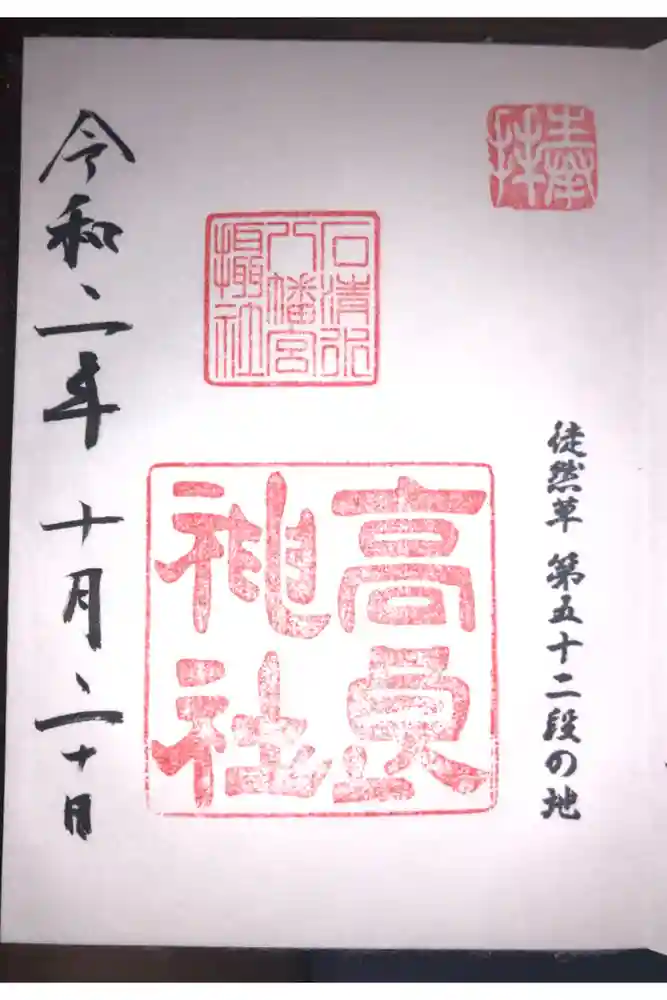 奉拝
徒然草 第五十二段の地
石清水
八幡宮
攝社
高良
神社
令和二年十月二十日